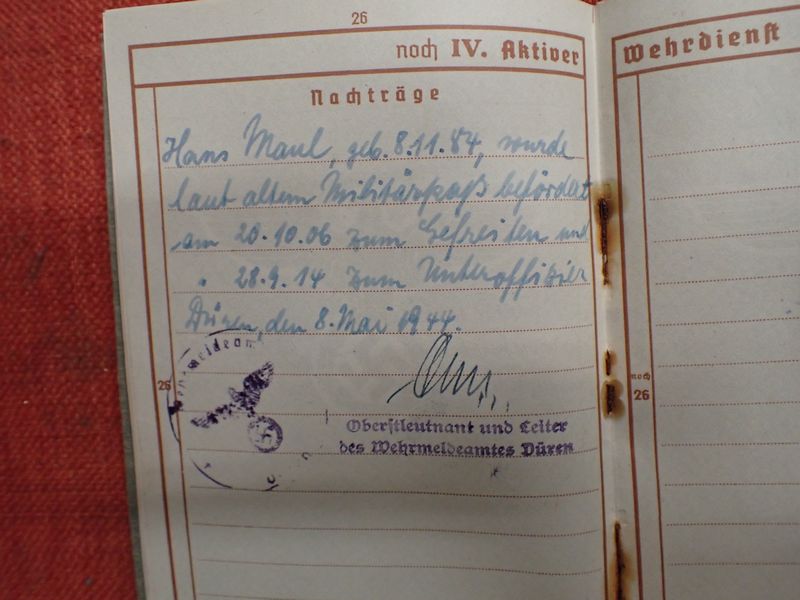 26
noch IV. Aktiver
Wehrdienst
Nachträge
Hans Maul, geb. 8.11.84, wurde
laut altem Militärpaß befördert
am 20.10.06 zum Gefreiten und
" 28.9.14 zum Unteroffizier
Düren, den 8. Mai 1944.
26
noch
26
Oberstleutnant und Leiter
des Wehrmeldeamtes Düren